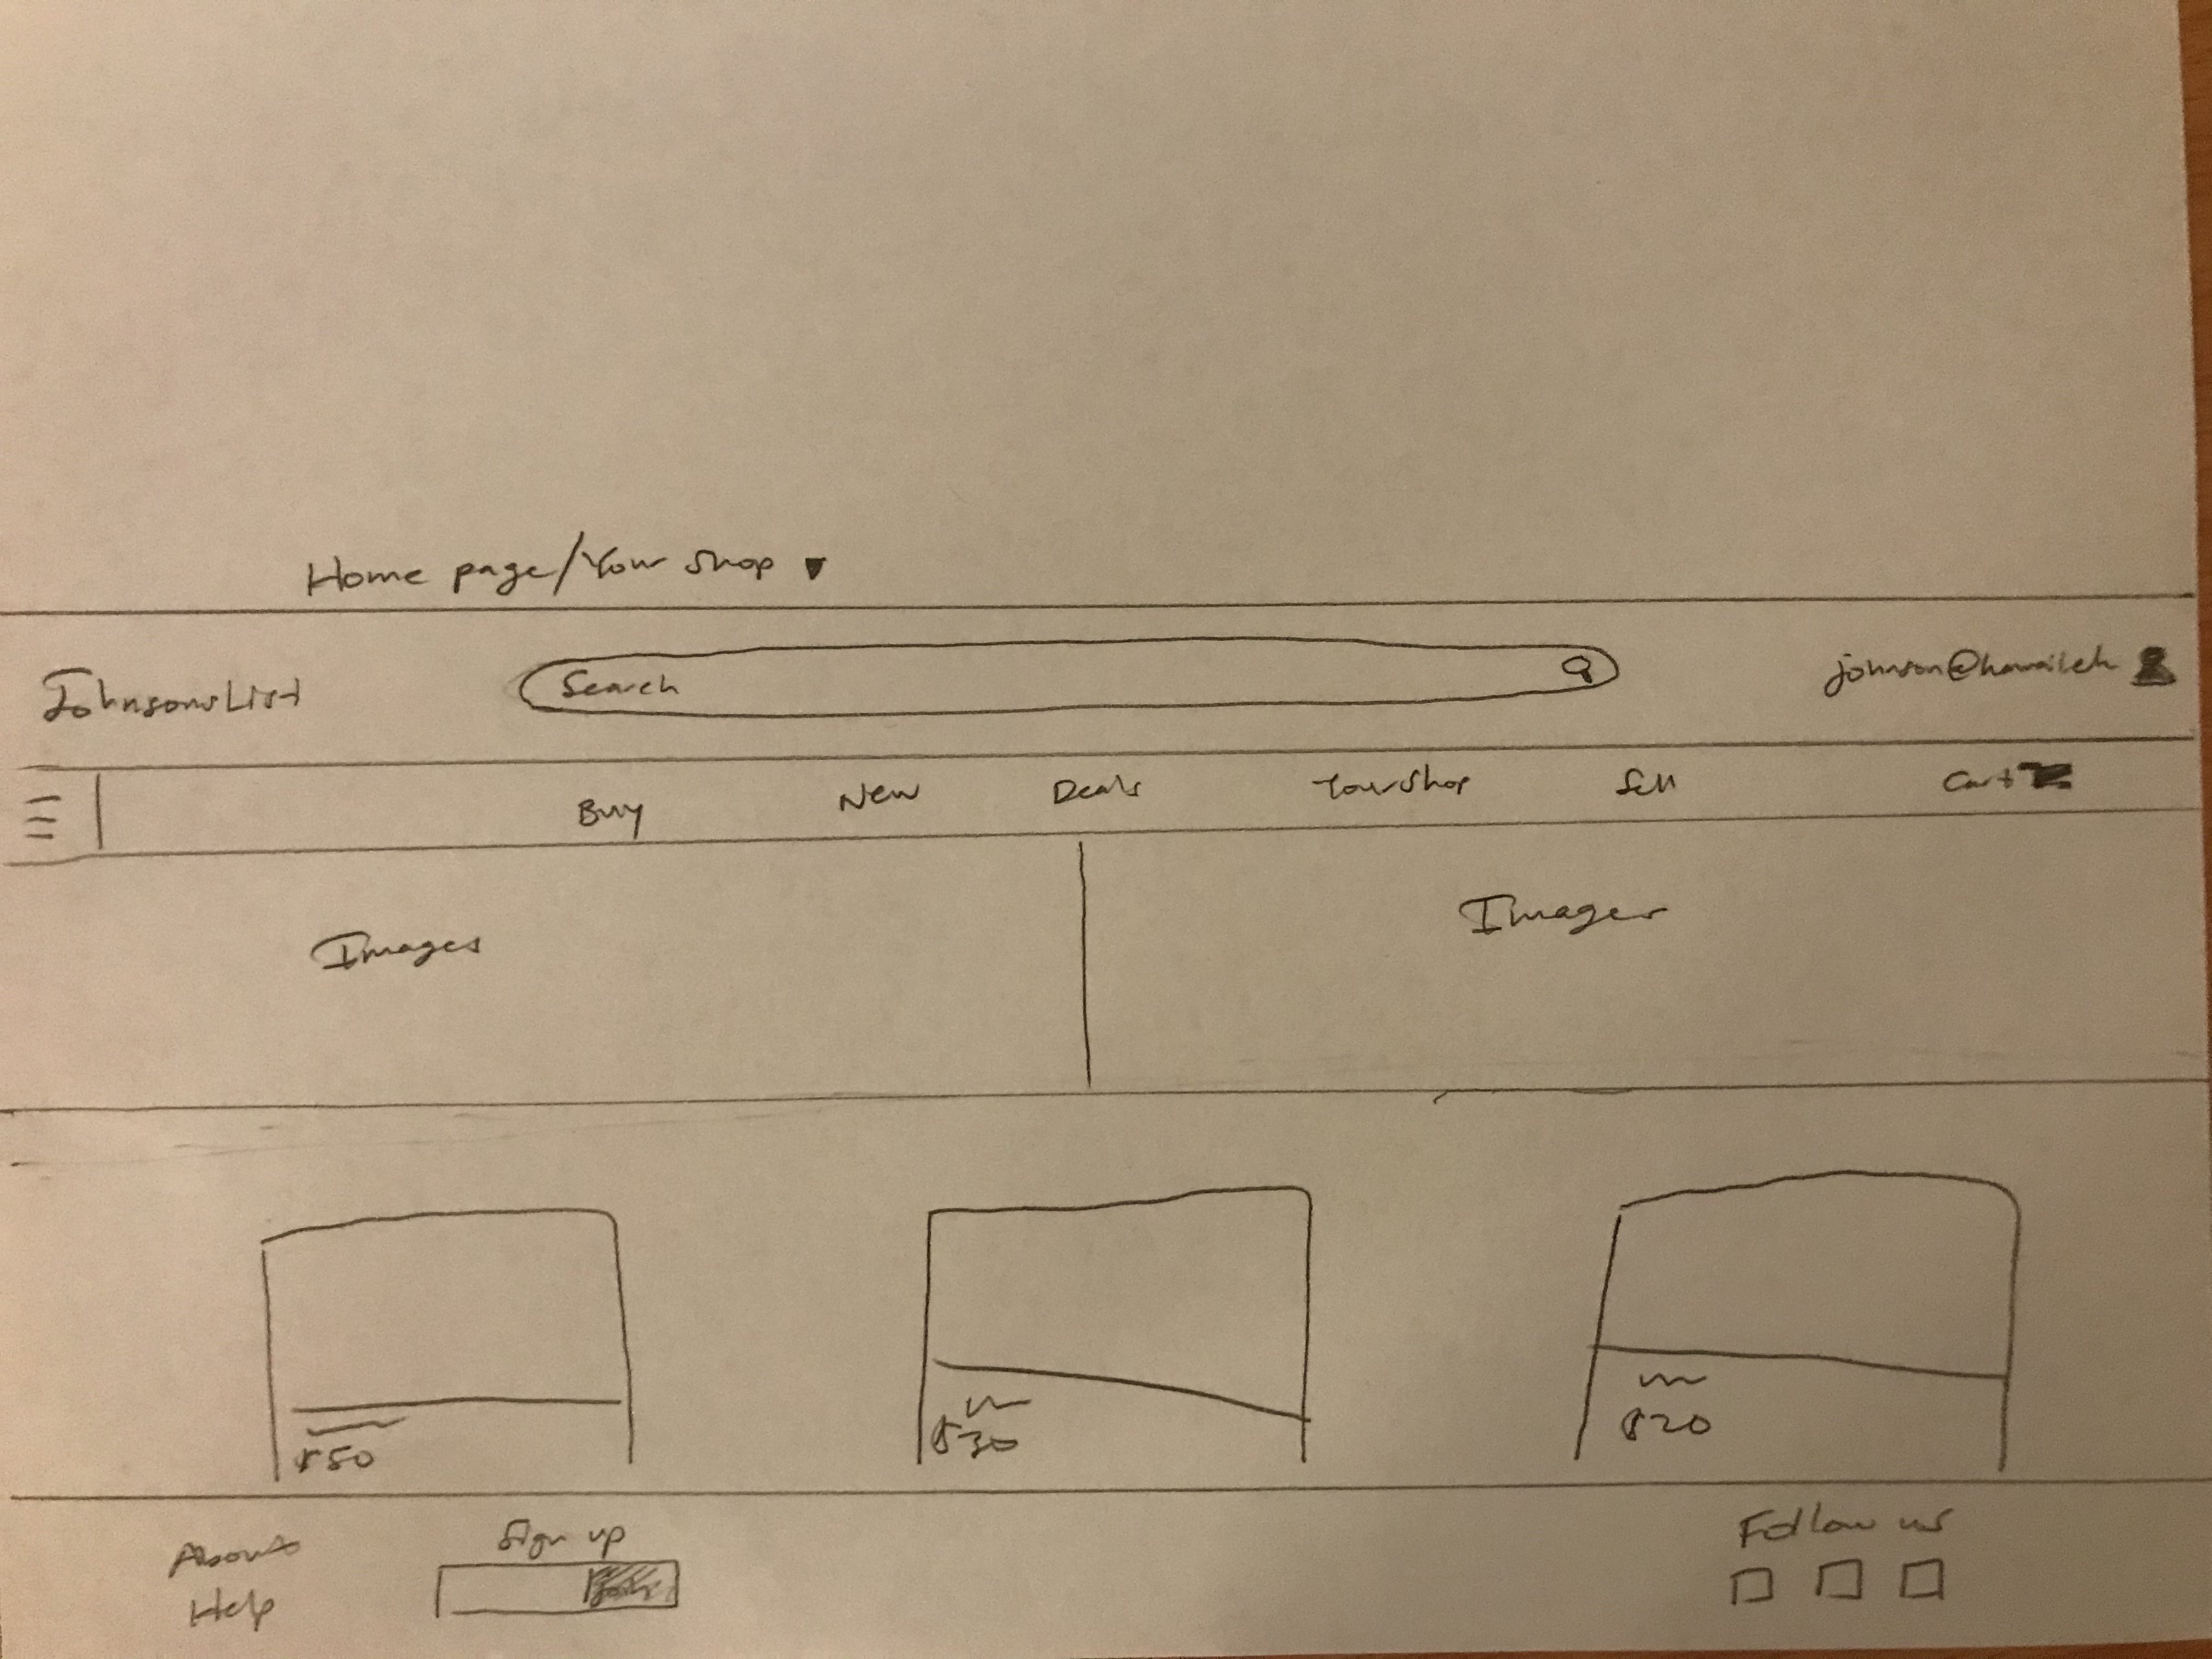 Home page/Your Shop
JohnsonsList
Search
Buy
New
Deals
YourShop
Sell
Cart
Images
Images
$50
$30
$20
About
Help
Sign up
Follow us